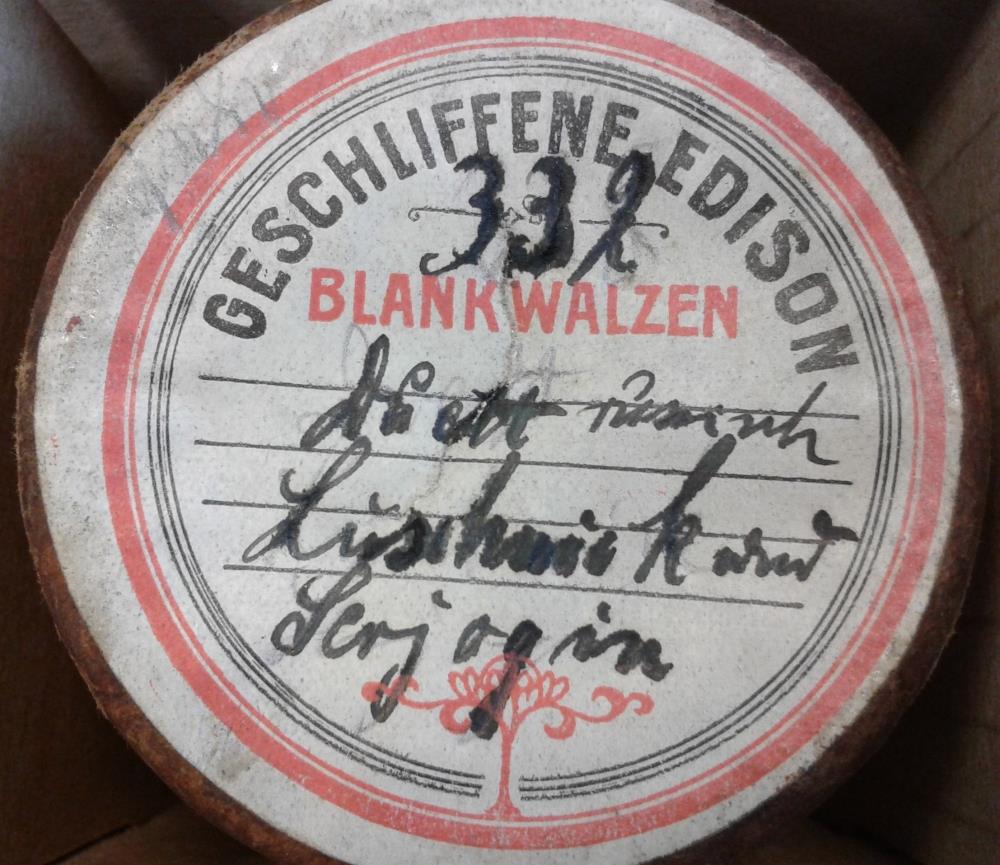 GESCHLIFFENE EDISON
332
BLANKWALZEN
Duett russisch
Luschnik und
Serjogin